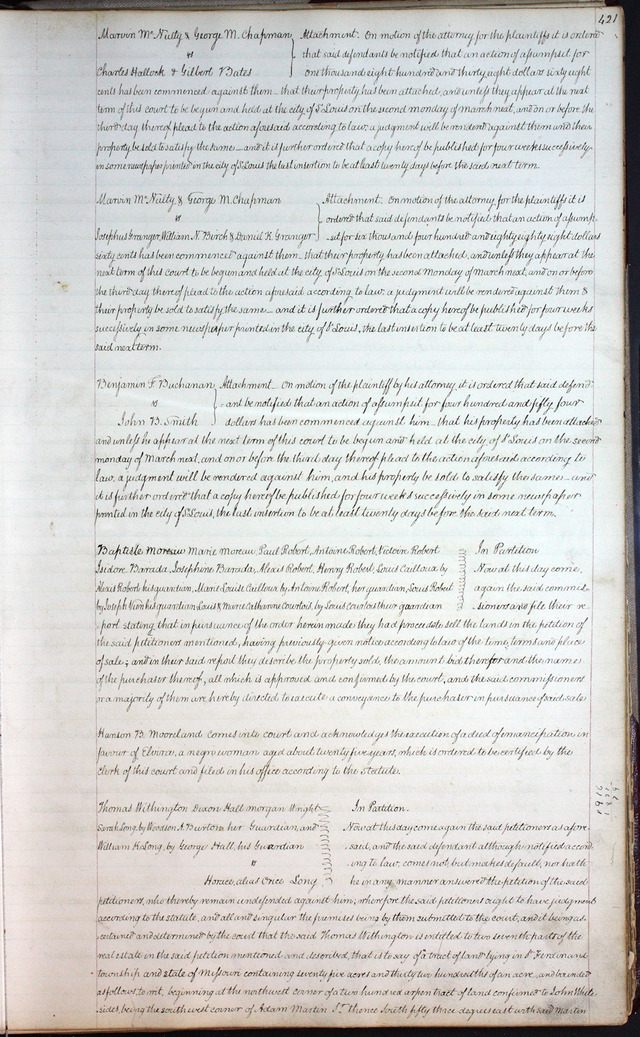 421
Marvin McNulty & George M. Chapman } Attachment. On motion of the attorney for the plaintiffs it is ordered
vs that said defendants be notified that an action of assumpsit for
Charles Hallock & Gilbert Bates one thousand eight hundred and thirty eight dollars sixty eight
cents has been commenced against them — that their property has been attached, and unless they appear at the next
term of this court to be begun and held at the city of St Louis on the second monday of march next, and on or before the
third day thereof plead to the action aforesaid according to law, a judgment will be rendered against them and their
property be sold to satisfy the same — and it is further ordered that a copy hereof be published for four weeks successively
in some newspaper printed in the city of St Louis the last insertion to be at least twenty days before the said next term.
Marvin McNulty & George M. Chapman } Attachment. On motion of the attorney for the plaintiffs it is
vs ordered that said defendants be notified that an action of assump
Josephus Granger, William N. Birch & Daniel K. Granger sit for six thousand four hundred and eighty eighty eight dollars
sixty cents has been commenced against them — that their property has been attached, and unless they appear at the
next term of this court to be begun and held at the city of St Louis on the second Monday of March next, and on or before
the third day thereof plead to the action aforesaid according to law, a judgment will be rendered against them &
their property be sold to satisfy the same — and it is further ordered that a copy hereof be published for four weeks
successively in some newspaper printed in the city of St Louis, the last insertion to be at least twenty days before the
said next term.
Benjamin F Buchanan } Attachment — On motion of the plaintiff by his attorney it is ordered that said defend
vs ant be notified that an action of assumpsit for four hundred and fifty four
John B. Smith dollars has been commenced against him — that his property has been attached
and unless he appear at the next term of this court to be begun and held at the city of St Louis on the second
monday of March next, and on or before the third day thereof plead to the action aforesaid according to
law, a judgment will be rendered against him, and his property be sold to satisfy the same — and
it is further ordered that a copy hereof be published for four weeks successively in some newspaper
printed in the city of St Louis, the last insertion to be at least twenty days before the said next term.
Baptiste Moreau Marie Moreau Paul Robert, Antoine Robert, Victoire Robert In Partition
Isidore Barada, Josephine Barada, Alexis Robert, Henry Robert, Louis Cailloux by Now at this day come
Alexis Robert his guardian, Marie Louise Cailloux by Antoine Robert, her guardian, Louis Robert again the said commis
by Joseph his guardian Louis & Marie Catharine Courtois, by Louis Courtois their guardian sioners and file their re
port stating, that in pursuance of the order herein made they had proceed to sell the lands in the petition of
the said petitioners mentioned, having previously given notice according to law of the time, terms and place
of sale; and in their said report they describe the property sold, the amount bid therefor and the name
of the purchaser thereof, all which is approved and confirmed by the court, and the said commissioners
or a majority of them are hereby directed to execute a conveyance to the purchaser in pursuance of said sale
Hanson B. Mooreland comes into court and acknowledges the execution of a deed of emancipation in
favour of Elvira, a negro woman aged about twenty five years, which is ordered to be certified by the
clerk of this court and filed in his office according to the statute.
Thomas Withington Dixon Hall morgan Wright In Partition.
Sarah Long, by Woodson A. Burton her Guardian, and Now at this day come again the said petitioners as afore
William K Long, by George Hall, his Guardian said, and the said defendant although notified accord
vs ing to law, comes not, but makes default, nor hath
Horace, alias Once Long he in any manner answered the petition of the said
petitioners, who thereby remain undefended against him; wherefore the said petitioners ought to have judgment
according to the statute, and all and singular the premises being by them submitted to the court, and it being as-
certained and determined by the court that the said Thomas Withington is entitled to two seventh parts of the
real estate in the said petition mentioned and described, that is to say of a tract of land lying in St Ferdinand
township and state of Missouri containing seventy five acres and thirty two hundredths of an acre, and bounded
as follows to wit, beginning at the northwest corner of a two hundred arpen tract of land confirmed to John White
sides being the southwest corner of Adam Martin Sr. thence South fifty three degrees east with said Martin